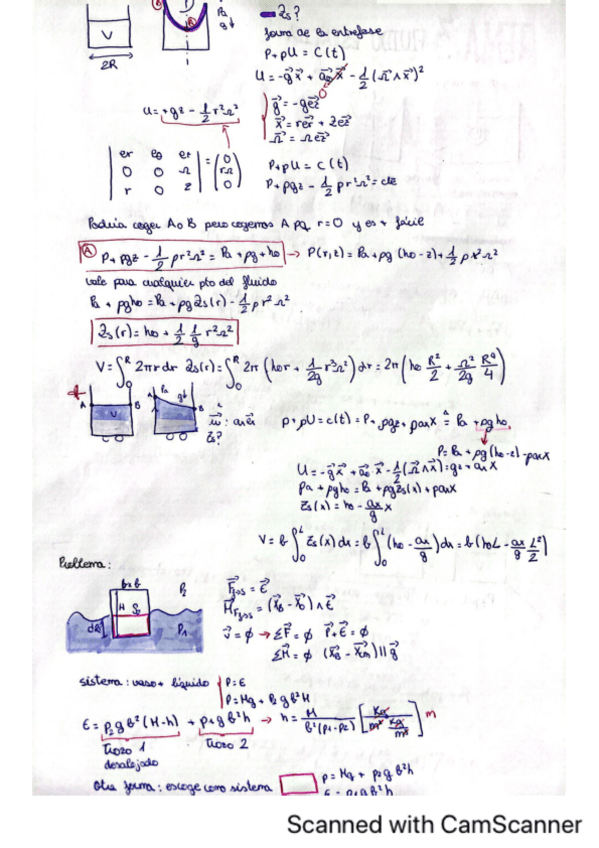 Zs?
forma de la entrefase
P+ρU = C(t)
V
2R
U = -g⃗x⃗ + a⃗₀x⃗ - 1/2 (Ω⃗∧x⃗)²
0
U = +gz - 1/2 r²Ω²
g⃗ = -ge⃗z
x⃗ = re⃗r + ze⃗z
Ω⃗ = Ωe⃗z
| er eθ ez | = ( 0 )
| 0 0 Ω | ( rΩ )
| r 0 z | ( 0 )
P+ρU = C(t)
P+ρgz - 1/2 ρr²Ω² = cte
Podría coger A o B pero cogemos A pq r=0 y es + fácil
Ⓐ P+ρgz - 1/2 ρr²Ω² = Pa+ρg+ho → P(r,z) = Pa+ρg(ho-z)+1/2 ρr²Ω²
vale para cualquier pto del fluido
Pa + ρgho = Pa+ρgZs(r) - 1/2 ρr²Ω²
Zs(r) = ho + 1/2 1/g r²Ω²
V = ∫₀ᴿ 2πr dr Zs(r) = ∫₀ᴿ 2π (ho r + 1/2g r³Ω²) dr = 2π (ho R²/2 + Ω²/2g R⁴/4)
A V B
Pa g↓ B
Zs?
P+ρU = c(t) = P+ρgz+ρaxX =ᴬ Pa+ρgho
P = Pa+ρg(ho-z)-ρaxX
U = -g⃗x⃗ + a⃗₀x⃗ - 1/2(Ω⃗∧x⃗) = gz+axX
Pa + ρgho = Pa+ρgZs(x)+ρaxX
Zs(x) = ho - ax/g X
V = b ∫₀ᴸ Zs(x) dx = b ∫₀ᴸ (ho - ax/g) dx = b (hoL - ax/g L²/2)
Problema:
b×b
H
ρ₂
ρ₁
v⃗ = ∅ → ΣF⃗ = ∅ P⃗+E⃗ = ∅
ΣM⃗ = ∅
sistema: vaso + líquido
P = E
P = Mg + ρ₂gb²H
E = ρ₂gb²(H-h) + ρ₁gb²h → h = M/b²(ρ₁-ρ₂) [Kg/m² Kg/m³] m
trozo 1 trozo 2
desalojado
Otra forma: escoge como sistema
P = Mg + ρ₂gb²h
E = ρ₁gb²h
Scanned with CamScanner